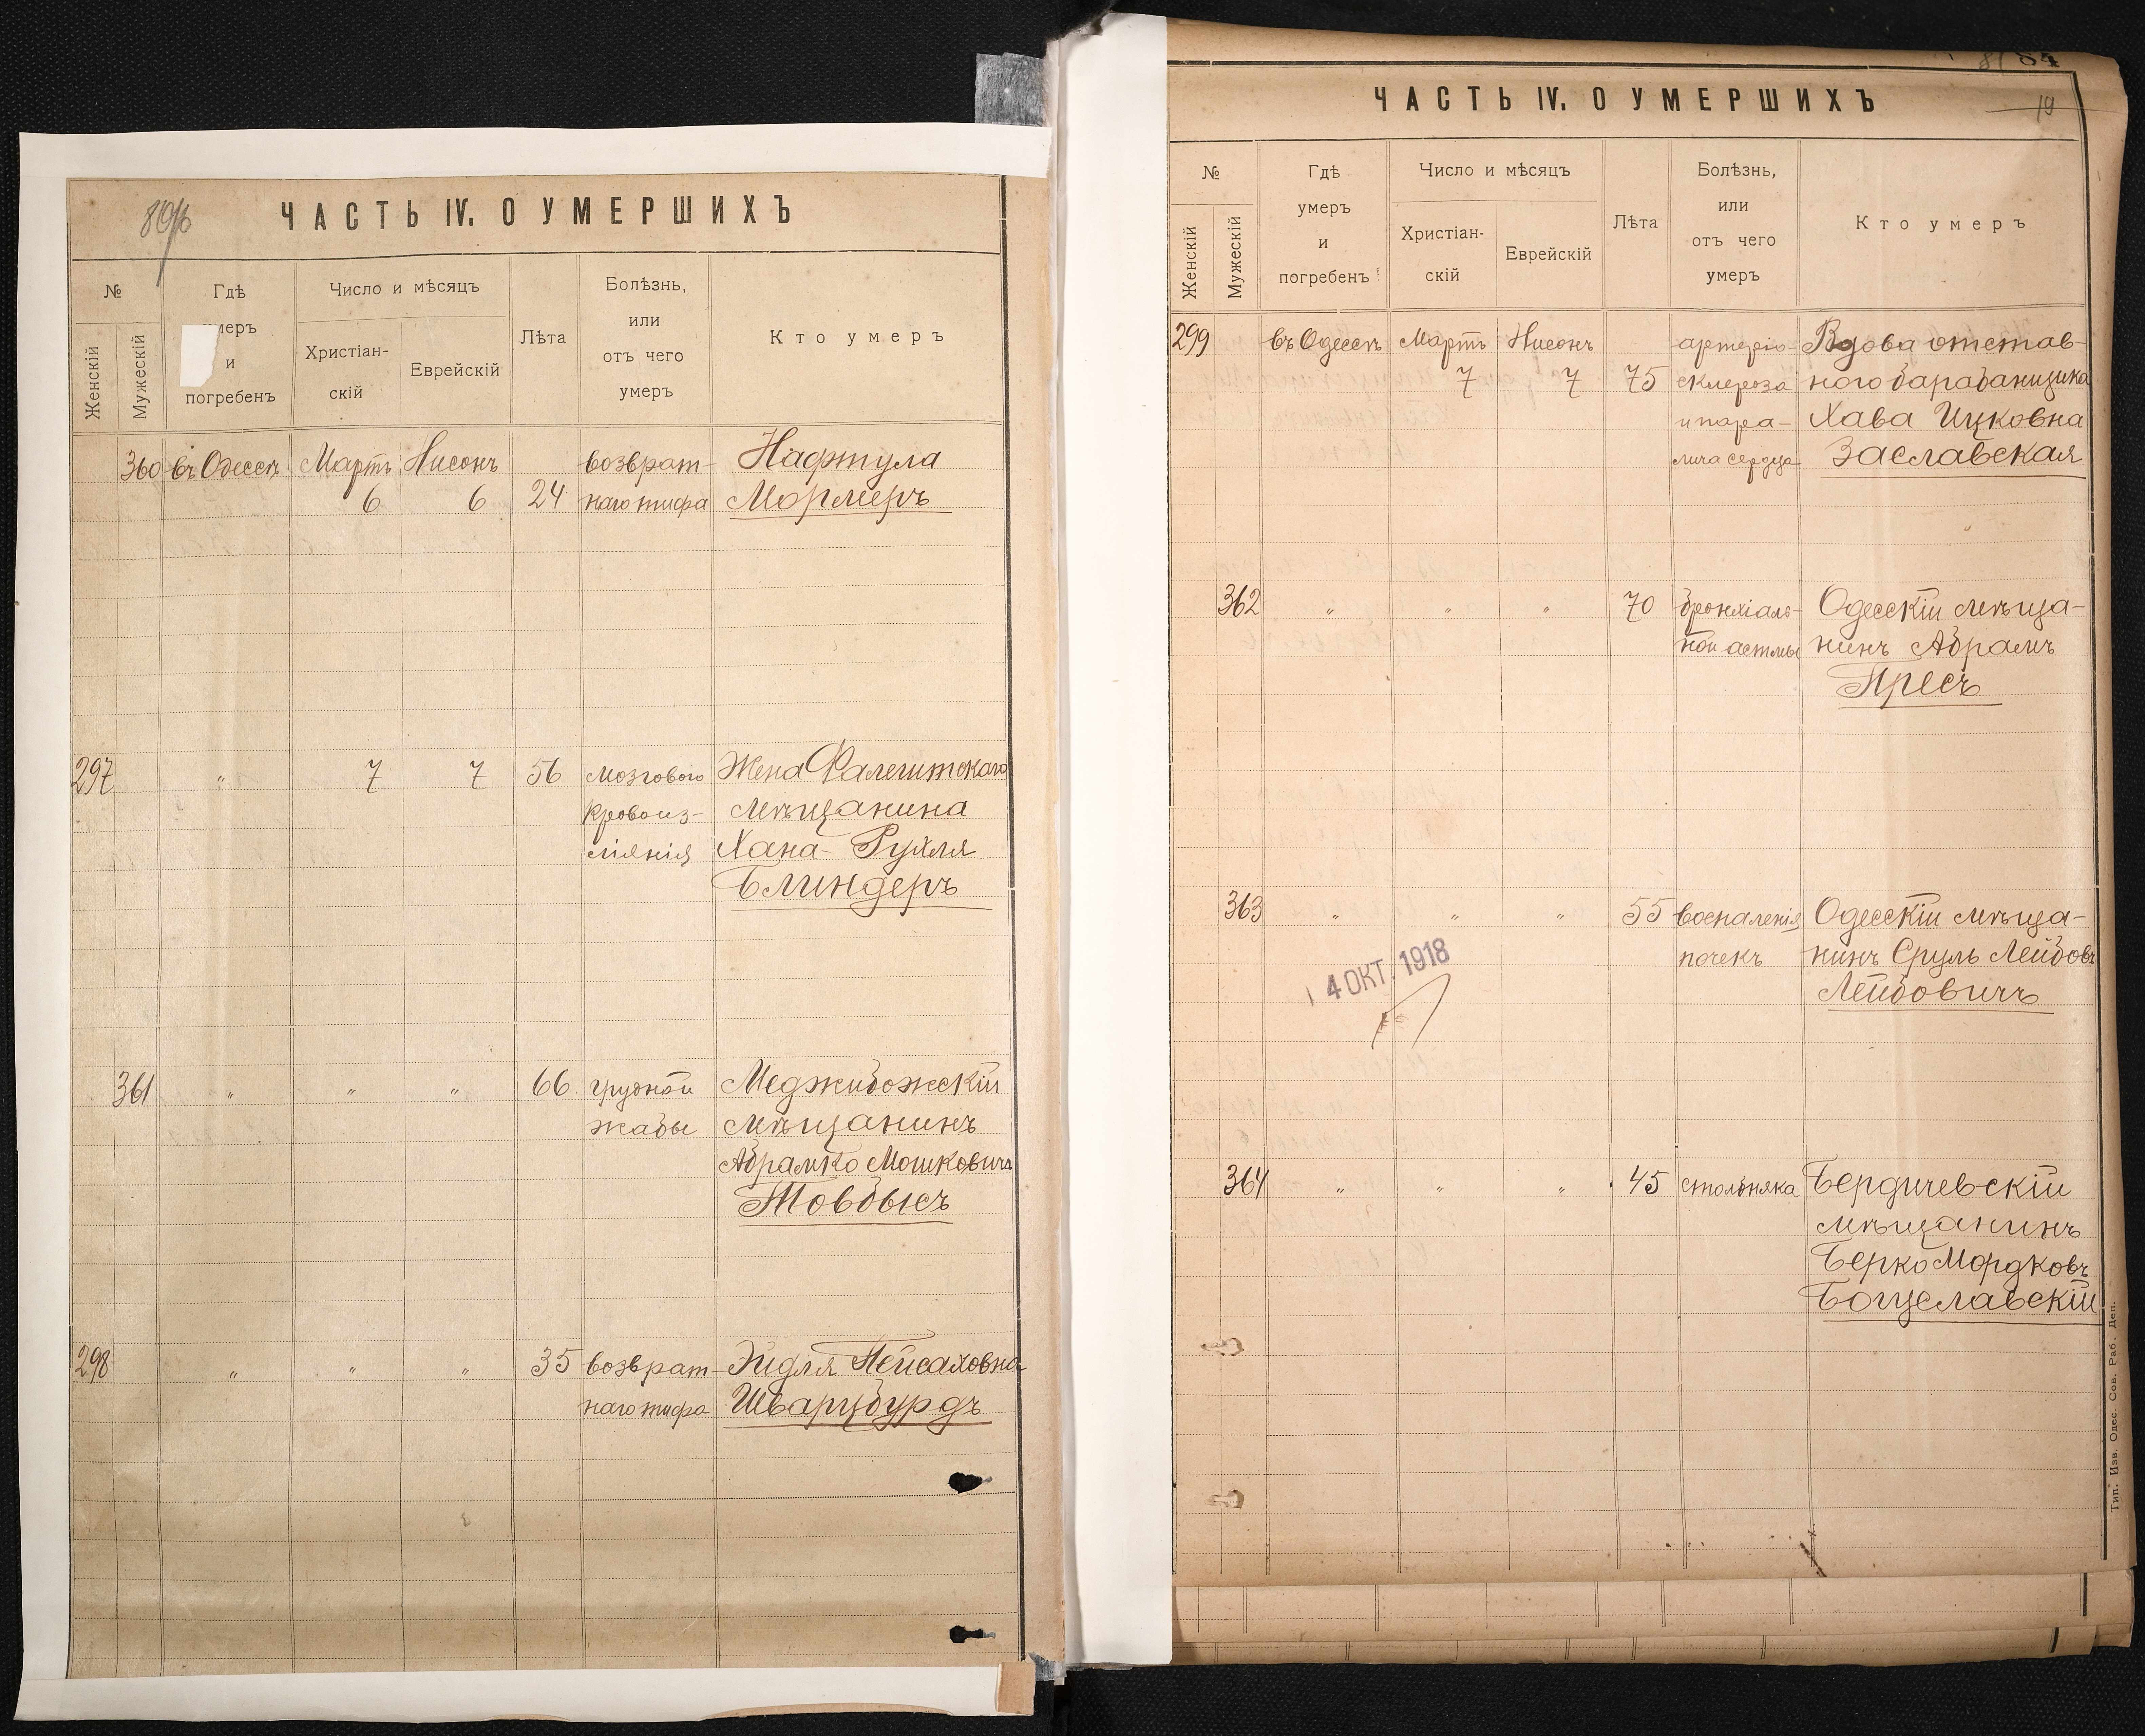 ЧАСТЬ IV. О УМЕРШИХЪ
№
Женскій
Мужескій
Гдѣ
умеръ
и
погребенъ
Число и мѣсяцъ
Христіан-
скій
Еврейскій
Лѣта
Болѣзнь,
или
отъ чего
умеръ
Кто умеръ
360 въ Одессѣ Мартъ Нисонъ возврат- Нафтула
6 6 24 наго тифа Мормеръ
297 " 7 7 56 мозгового Жена Фалештскаго
кровоиз- мѣщанина
ліянія Хана-Рухля
Блиндеръ
361 " " " 66 грудной Меджибожскій
жабы мѣщанинъ
Абрамко Мошковичъ
Товбысъ
298 " " " 35 возврат- Эйдля Пейсаховна
наго тифа Шварцбурдъ
84
19
ЧАСТЬ IV. О УМЕРШИХЪ
№
Женскій
Мужескій
Гдѣ
умеръ
и
погребенъ
Число и мѣсяцъ
Христіан-
скій
Еврейскій
Лѣта
Болѣзнь,
или
отъ чего
умеръ
Кто умеръ
299 въ Одессѣ Мартъ Нисонъ артеріо- Вдова отстав-
7 7 75 склероза ного барабанщика
и пара- Хава Ицковна
лича сердца Заславская
362 " " " 70 бронхіаль- Одесскій мѣща-
ной астмы нинъ Абрамъ
Пресъ
363 " " " 55 воспаленія Одесскій мѣща-
почекъ нинъ Сруль Лейбовъ
Лейбовичъ
4 ОКТ. 1918
364 " " " 45 столбняка Бердичевскій
мѣщанинъ
Берко Мордковъ
Богуславскій
Тип. Изв. Одес. Сов. Раб. Деп.